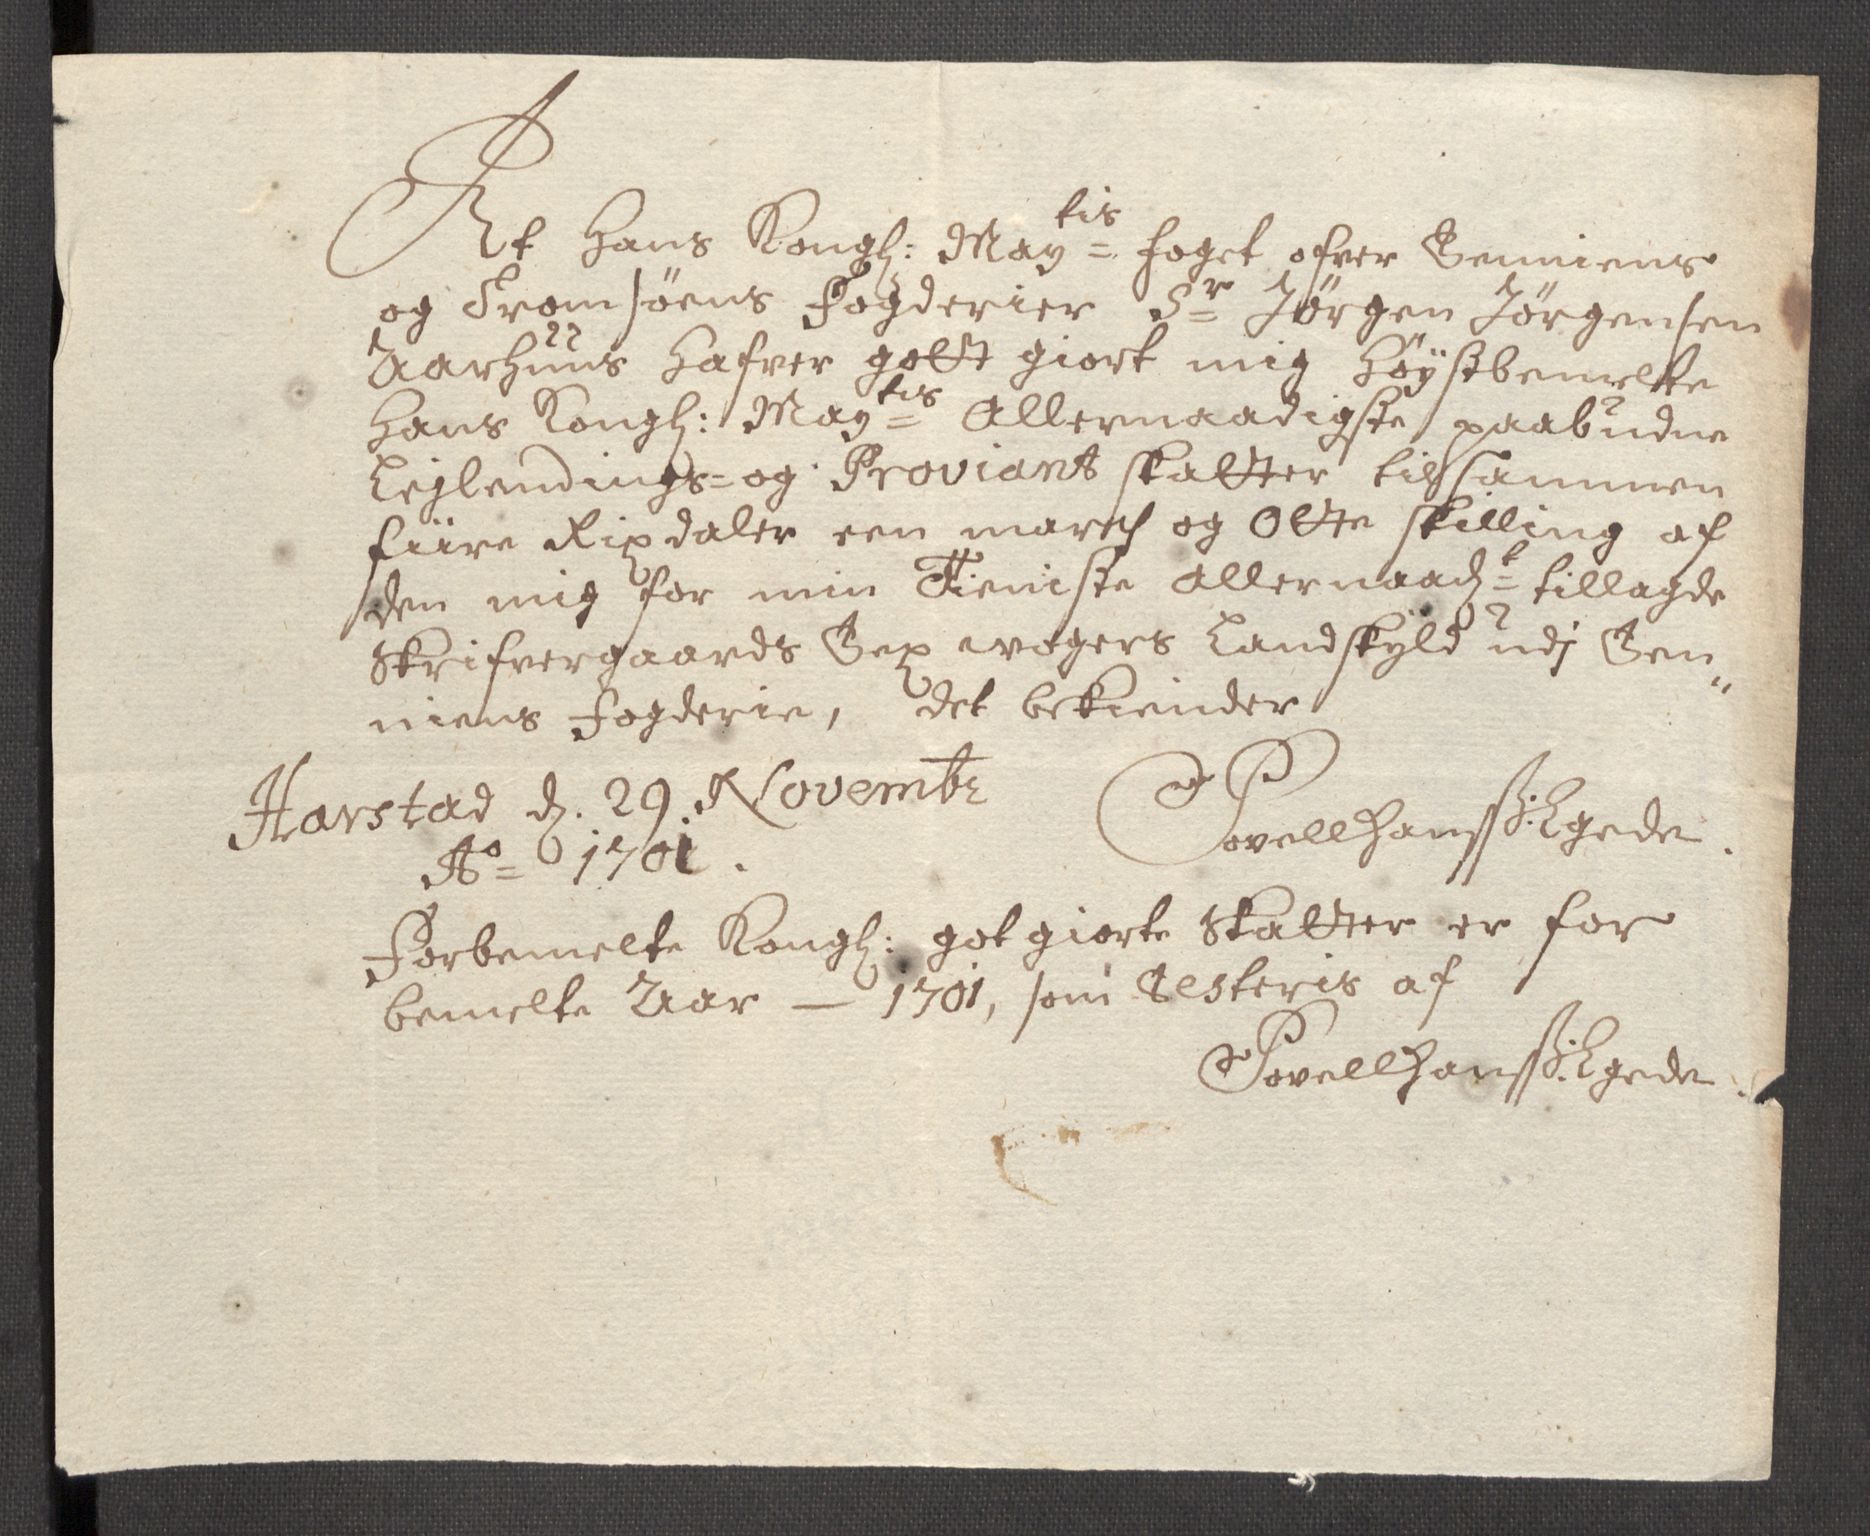 At Hans Kongl: May^tis= foget ofver Senniens
og Tromsöens Fogderier S^r= Jörgen Jörgensen
Aarhuus Hafver gott giort mig Höystbemelte
Hans Kongl: May^tis= Allernaadigste paabudne
Leylendings= og Proviant skatter tilsammen
fiire Rixdaler een march og Otte skilling af
den mig for min Tieniste allernaad^t= tillagde
Skrifvergaards Sex wogers Landskyld udj Sen„
niens Fogderie, det bekiender
Harstad d. 29 Novembr
A^o= 1701.
Povell Hanss: Egede.
Forbemelte Kongl: got giorte Skatter er for
bemelte Aar — 1701, som Testeris af
Povell Hanss: Egede.